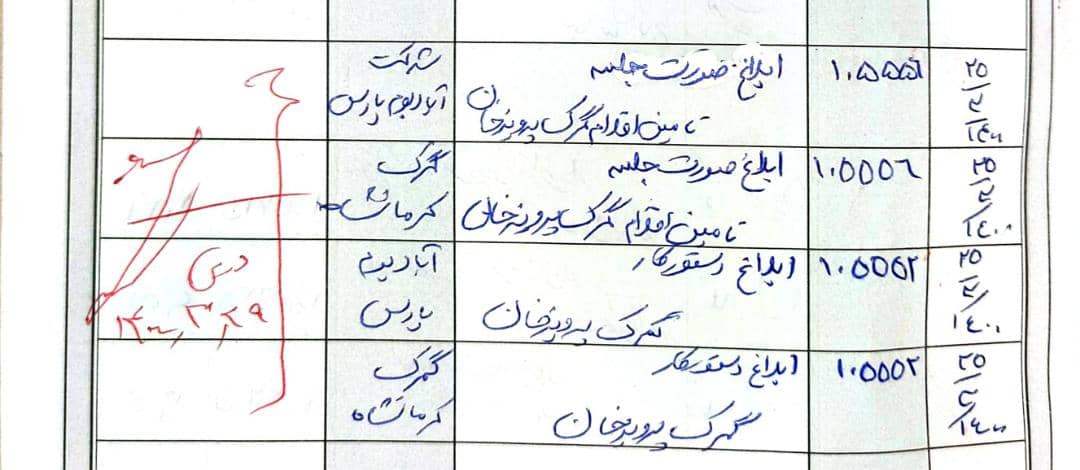 ۲۵/۲/۱۴۰۰
۱۰۵۵۵۶
ابلاغ صورت جلسه
تامین اقدام گمرک پرویزخان
شرکت
آبادبوم پارس
۲۵/۲/۱۴۰۰
۱۰۵۵۵۶
ابلاغ صورت جلسه
تامین اقدام گمرک پرویزخان
گمرک
کرمانشاه
۲۵/۲/۱۴۰۰
۱۰۵۵۵۲
ابلاغ دستورکار
گمرک پرویزخان
آبادبوم
پارس
۲۵/۲/۱۴۰۰
۱۰۵۵۵۲
ابلاغ دستورکار
گمرک پرویزخان
گمرک
کرمانشاه
۱۴۰۰,۳,۲۹